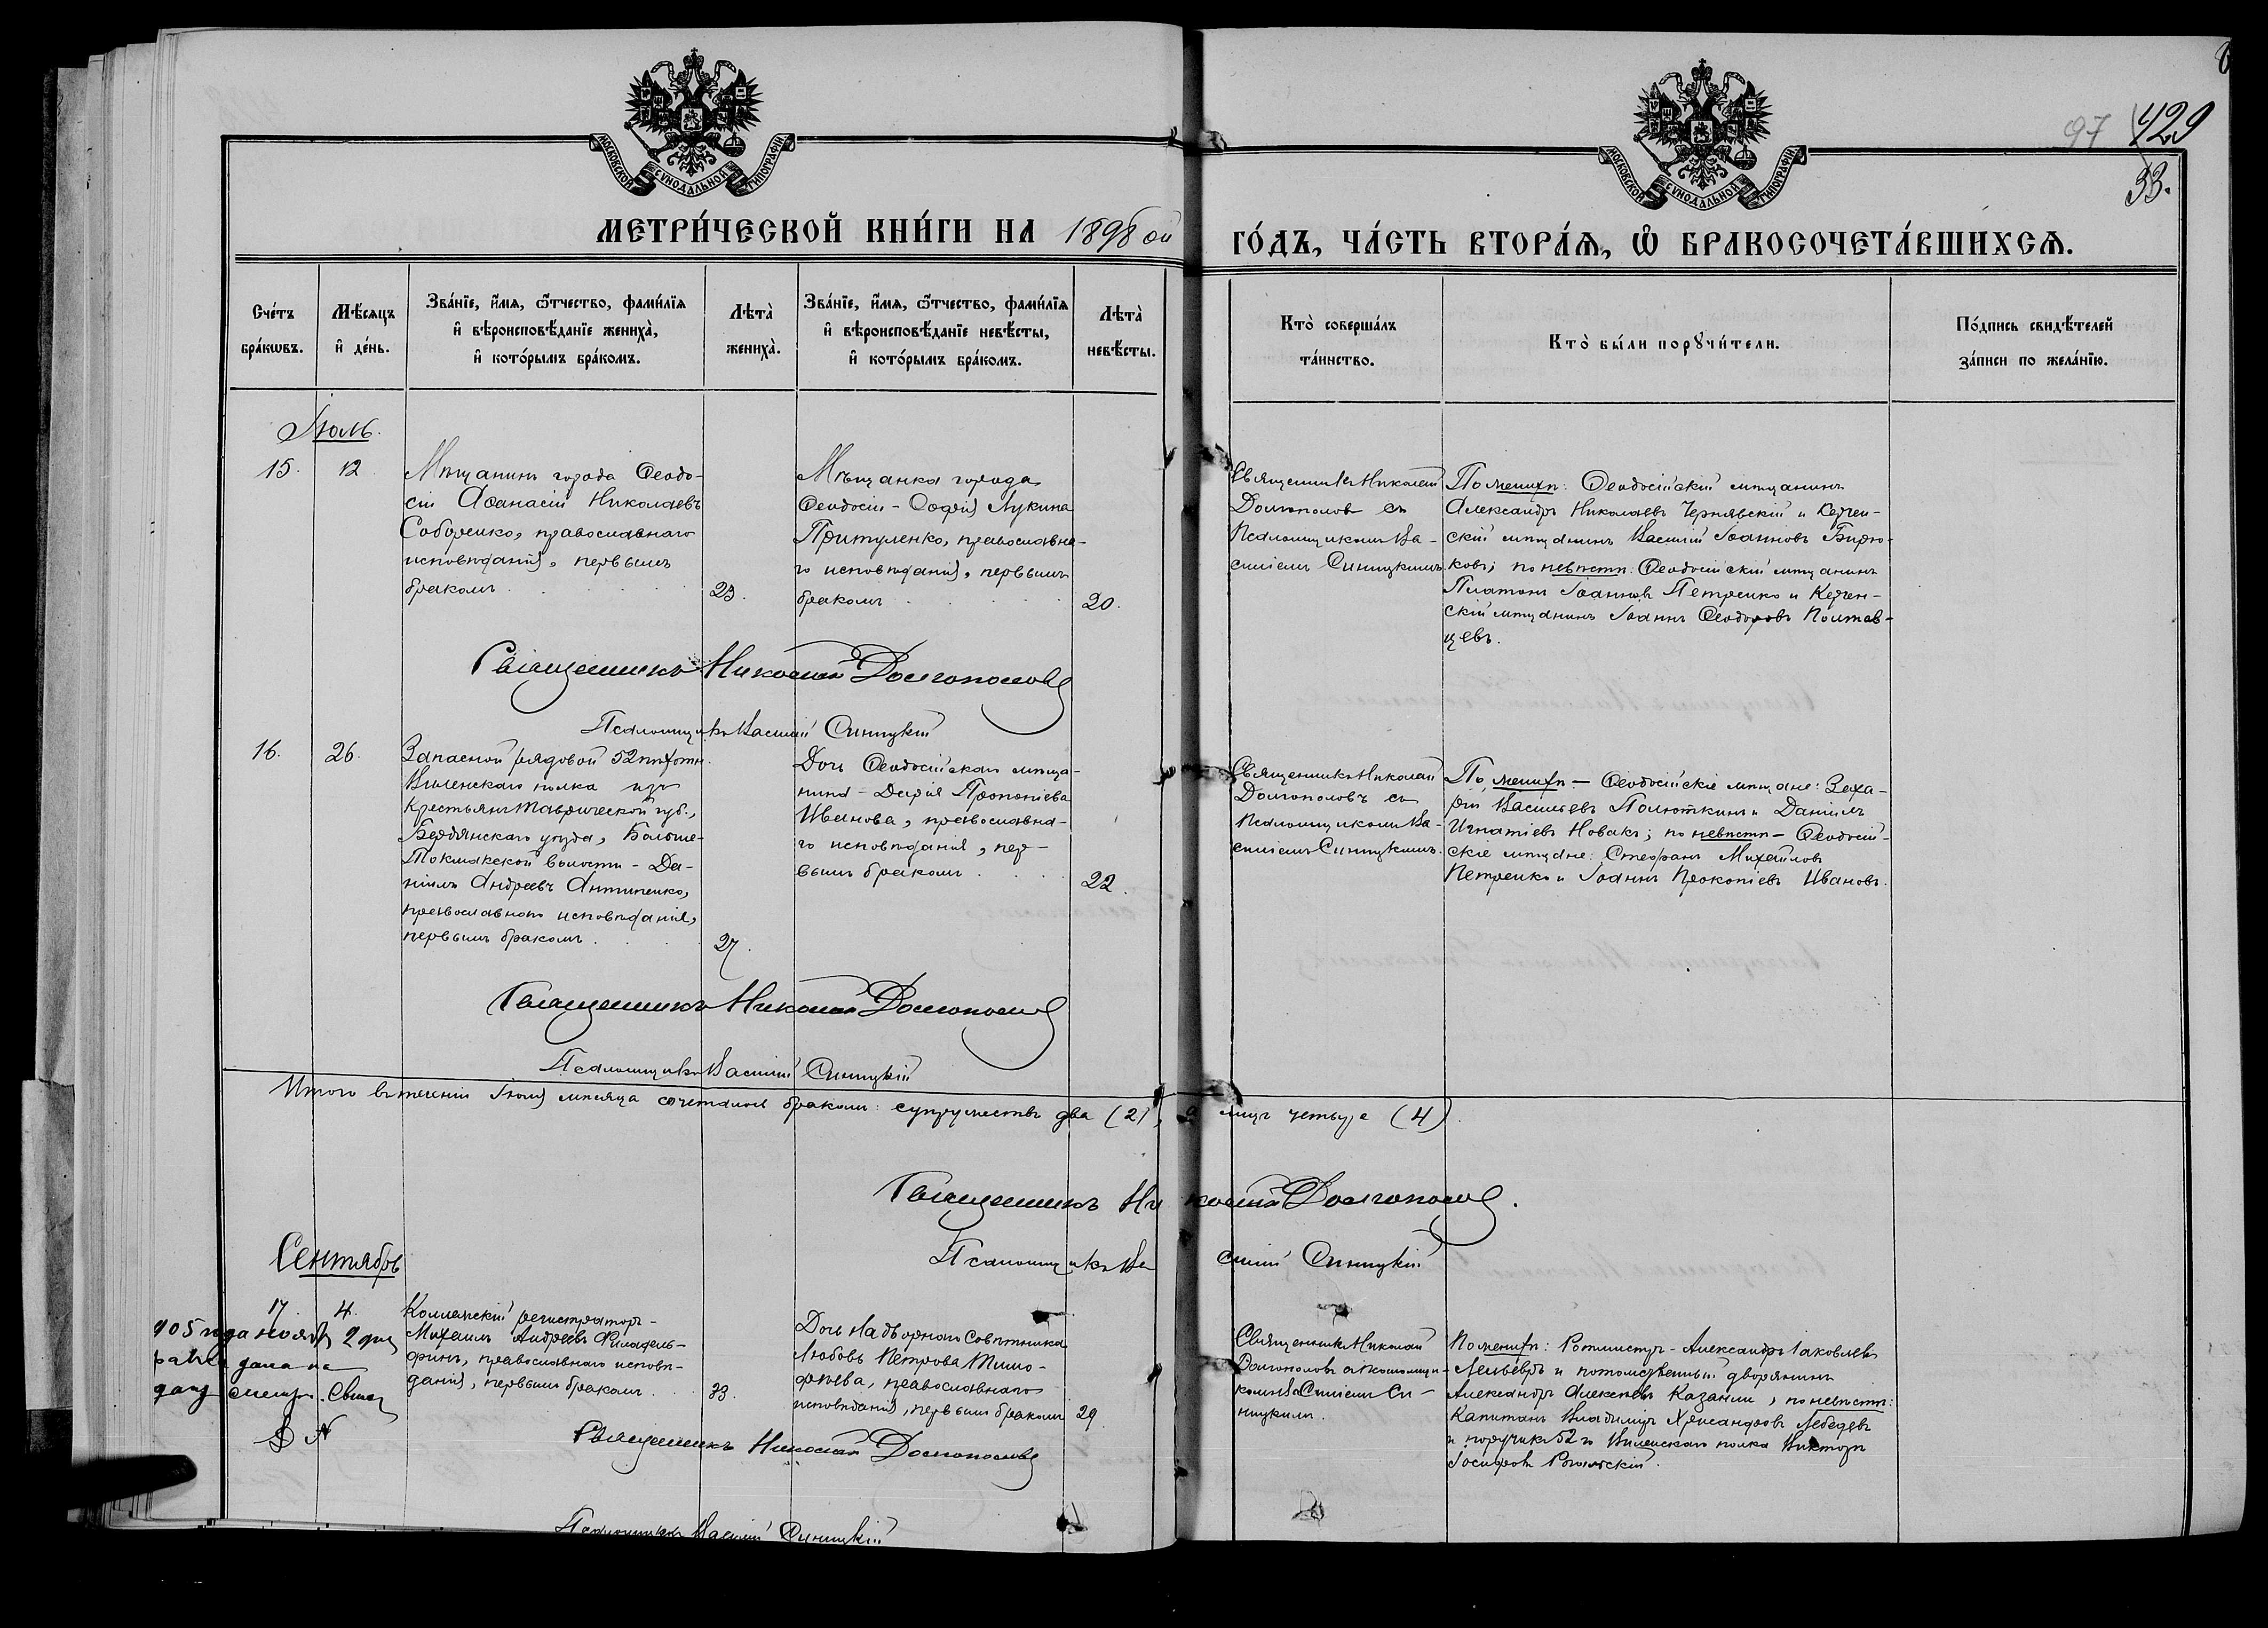 97 429
33.
МОСКОВСКОЙ СѴНОДАЛЬНОЙ ТИПОГРАФІИ
МОСКОВСКОЙ СѴНОДАЛЬНОЙ ТИПОГРАФІИ
МЕТРИ́ЧЕСКОЙ КНИ́ГИ НА 1898 ой ГО́ДЪ, ЧА́СТЬ ВТОРА́Я, Ѡ БРАКОСОЧЕТА́ВШИХСЯ.
Сче́тъ
бра́кωвъ.
Мѣ́сяцъ
и҆ де́нь.
Зва́нїе, и҆́мя, ѻ҆́тчество, фами́лїя
и҆ вѣроисповѣ́данїе жениха̀,
и҆ кото́рымъ бра́комъ.
Лѣта̀
жениха̀.
Зва́нїе, и҆́мя, ѻ҆́тчество, фами́лїя
и҆ вѣроисповѣ́данїе невѣ́сты,
и҆ кото́рымъ бра́комъ.
Лѣта̀
невѣ́сты.
Кто̀ соверша́лъ
та́инство.
Кто̀ бы́ли порꙋчи́тели.
По́дпись свидѣ́телей
за́писи по жела́нїю.
Іюль.
15. 12
Мѣщанинъ города Ѳеодо-
сіи Аѳанасій Николаевъ
Соборенко, православнаго
исповѣданія, первымъ
бракомъ
23.
Мѣщанка города
Ѳеодосіи - Софія Лукина
Притуленко, православна-
го исповѣданія, первымъ
бракомъ
20.
Священникъ Николай
Долгополовъ съ
Псаломщикомъ Ва-
силіемъ Синицкимъ.
По женихѣ: Ѳеодосійскій мѣщанинъ
Александръ Николаевъ Чернявскій и Керчен-
скій мѣщанинъ Василій Іоанновъ Бирю-
ковъ; по невѣстѣ: Ѳеодосійскій мѣщанинъ
Платонъ Іоанновъ Петренко и Керчен-
скій мѣщанинъ Іоаннъ Ѳеодоровъ Полтав-
цевъ.
Священникъ Николай Долгополовъ
Псаломщикъ Василій Синицкій
16. 26.
Запасной рядовой 52 пѣхотн.
Виленскаго полка изъ
крестьянъ Таврической губ.,
Бердянскаго уѣзда, Больше-
Токмакской волости - Да-
ніилъ Андреевъ Антипенко,
православнаго исповѣданія,
первымъ бракомъ
27.
Дочь Ѳеодосійскаго мѣща-
нина - Дарія Прокопіева
Иванова, православна-
го исповѣданія, пер-
вымъ бракомъ
22.
Священникъ Николай
Долгополовъ съ
Псаломщикомъ Ва-
силіемъ Синицкимъ.
По женихѣ - Ѳеодосійскіе мѣщане: Заха-
рій Васильевъ Полюткинъ и Даніилъ
Игнатіевъ Новакъ; по невѣстѣ - Ѳеодосій-
скіе мѣщане: Стефанъ Михайловъ
Петренко и Іоаннъ Прокопіевъ Ивановъ.
Священникъ Николай Долгополовъ
Псаломщикъ Василій Синицкій
Итого въ теченіи Іюля мѣсяца сочетались бракомъ: супружествъ два (2), а лицъ четыре (4).
Священникъ Николай Долгополовъ.
Псаломщикъ Василій Синицкій
Сентябрь
17. 4.
905 года ноября 2 дня
дана на
Коллежскій регистраторъ -
Михаилъ Андреевъ Филадель-
финъ, православнаго исповѣ-
данія, первымъ бракомъ
33.
Дочь Надворнаго Совѣтника
Любовь Петрова Тимо-
фѣева, православнаго
исповѣданія, первымъ бракомъ
29.
Священникъ Николай
Долгополовъ съ псаломщи-
комъ Василіемъ Си-
ницкимъ.
По женихѣ: Ротмистръ - Александръ Іаковлевъ
и потомственный дворянинъ
Александръ Алексѣевъ Казанли, по невѣстѣ:
Капитанъ Владиміръ Хрисанфовъ Лебедевъ
и поручикъ 52 го Виленскаго полка Викторъ
Іосифовъ
Священникъ Николай Долгополовъ
Псаломщикъ Василій Синицкій